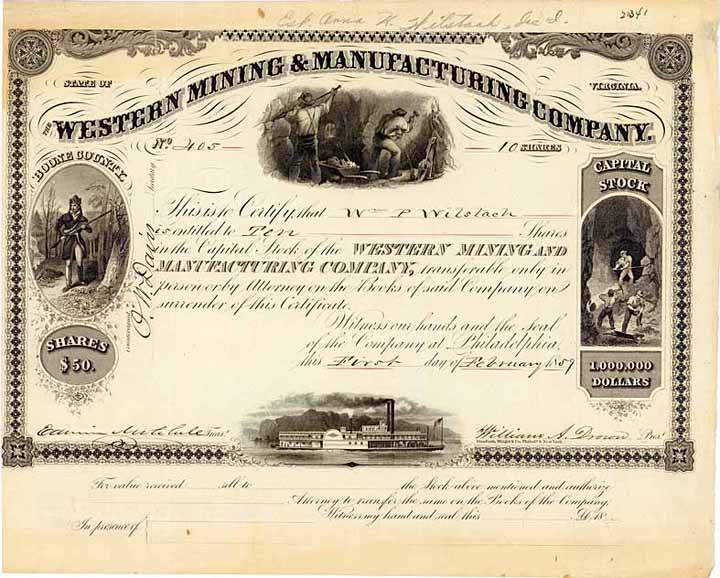 Anna K. Wilstach
2341
STATE OF VIRGINIA.
THE WESTERN MINING & MANUFACTURING COMPANY.
No. 405 10 SHARES
BOONE COUNTY.
CAPITAL
STOCK
This is to Certify, that Wm P Wilstach
is entitled to Ten Shares
in the Capital Stock of the WESTERN MINING AND
MANUFACTURING COMPANY, transferable only in
person or by Attorney on the Books of said Company on
surrender of this Certificate.
Witness our hands and the seal
of the Company at Philadelphia,
this First day of February 1859
SHARES
$50.
1,000,000
DOLLARS
Treasr.
William A. Drown Prest.
For value received sell to the Stock above mentioned and authorize
Attorney to transfer the same on the Books of the Company.
Witness my hand and seal this D. 18
In presence of